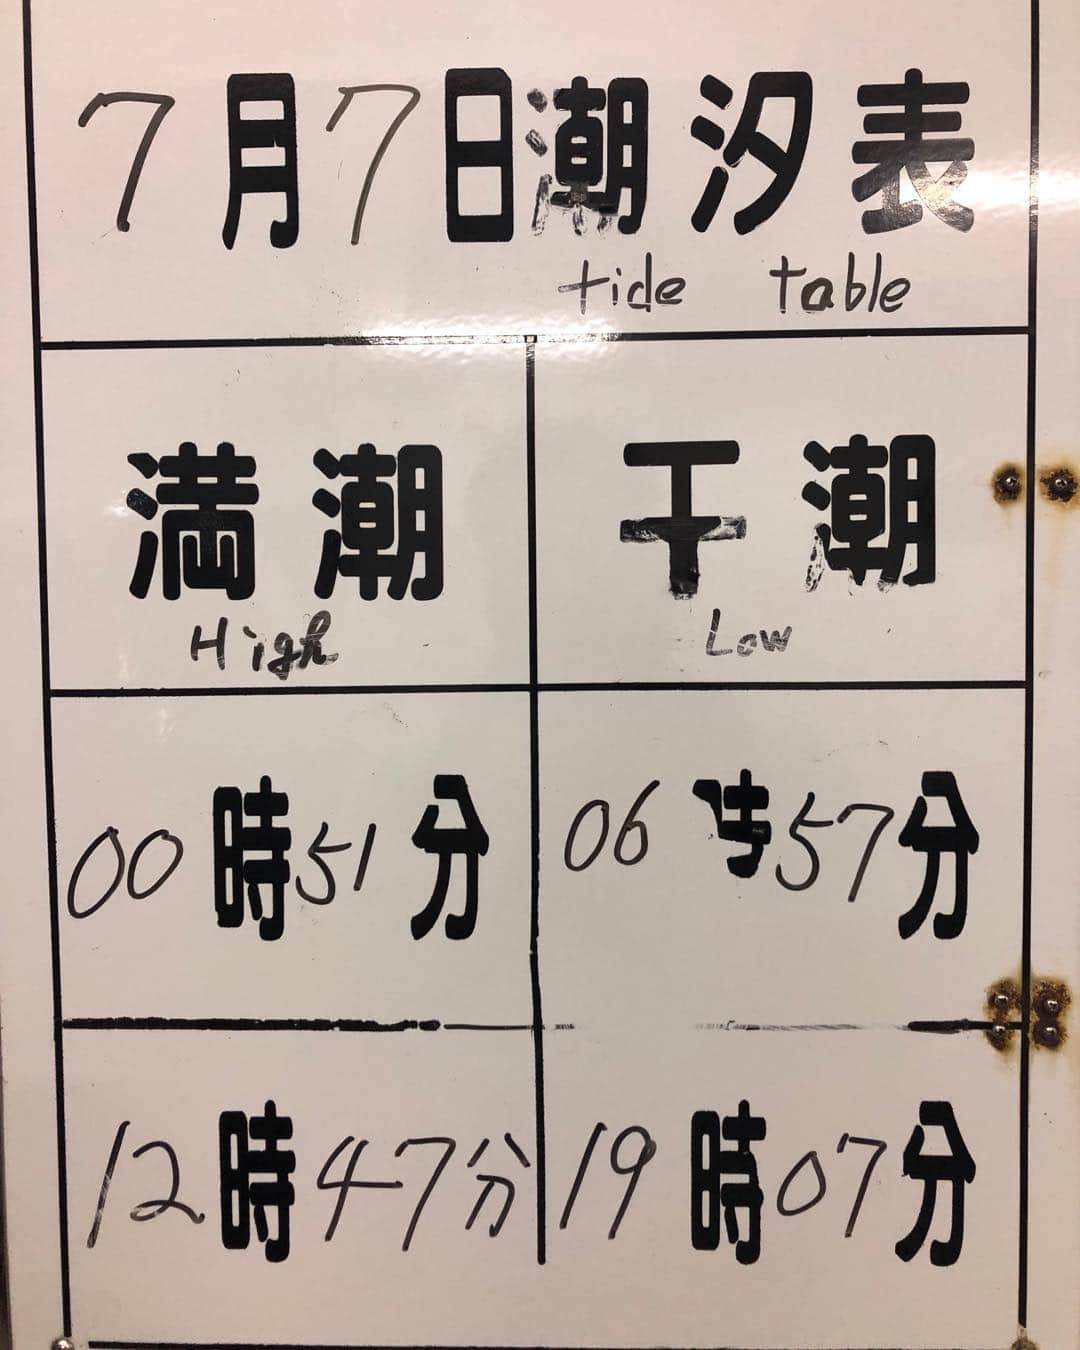 7月7日潮汐表
tide table
満潮 干潮
High Low
00時51分 06時57分
12時47分 19時07分